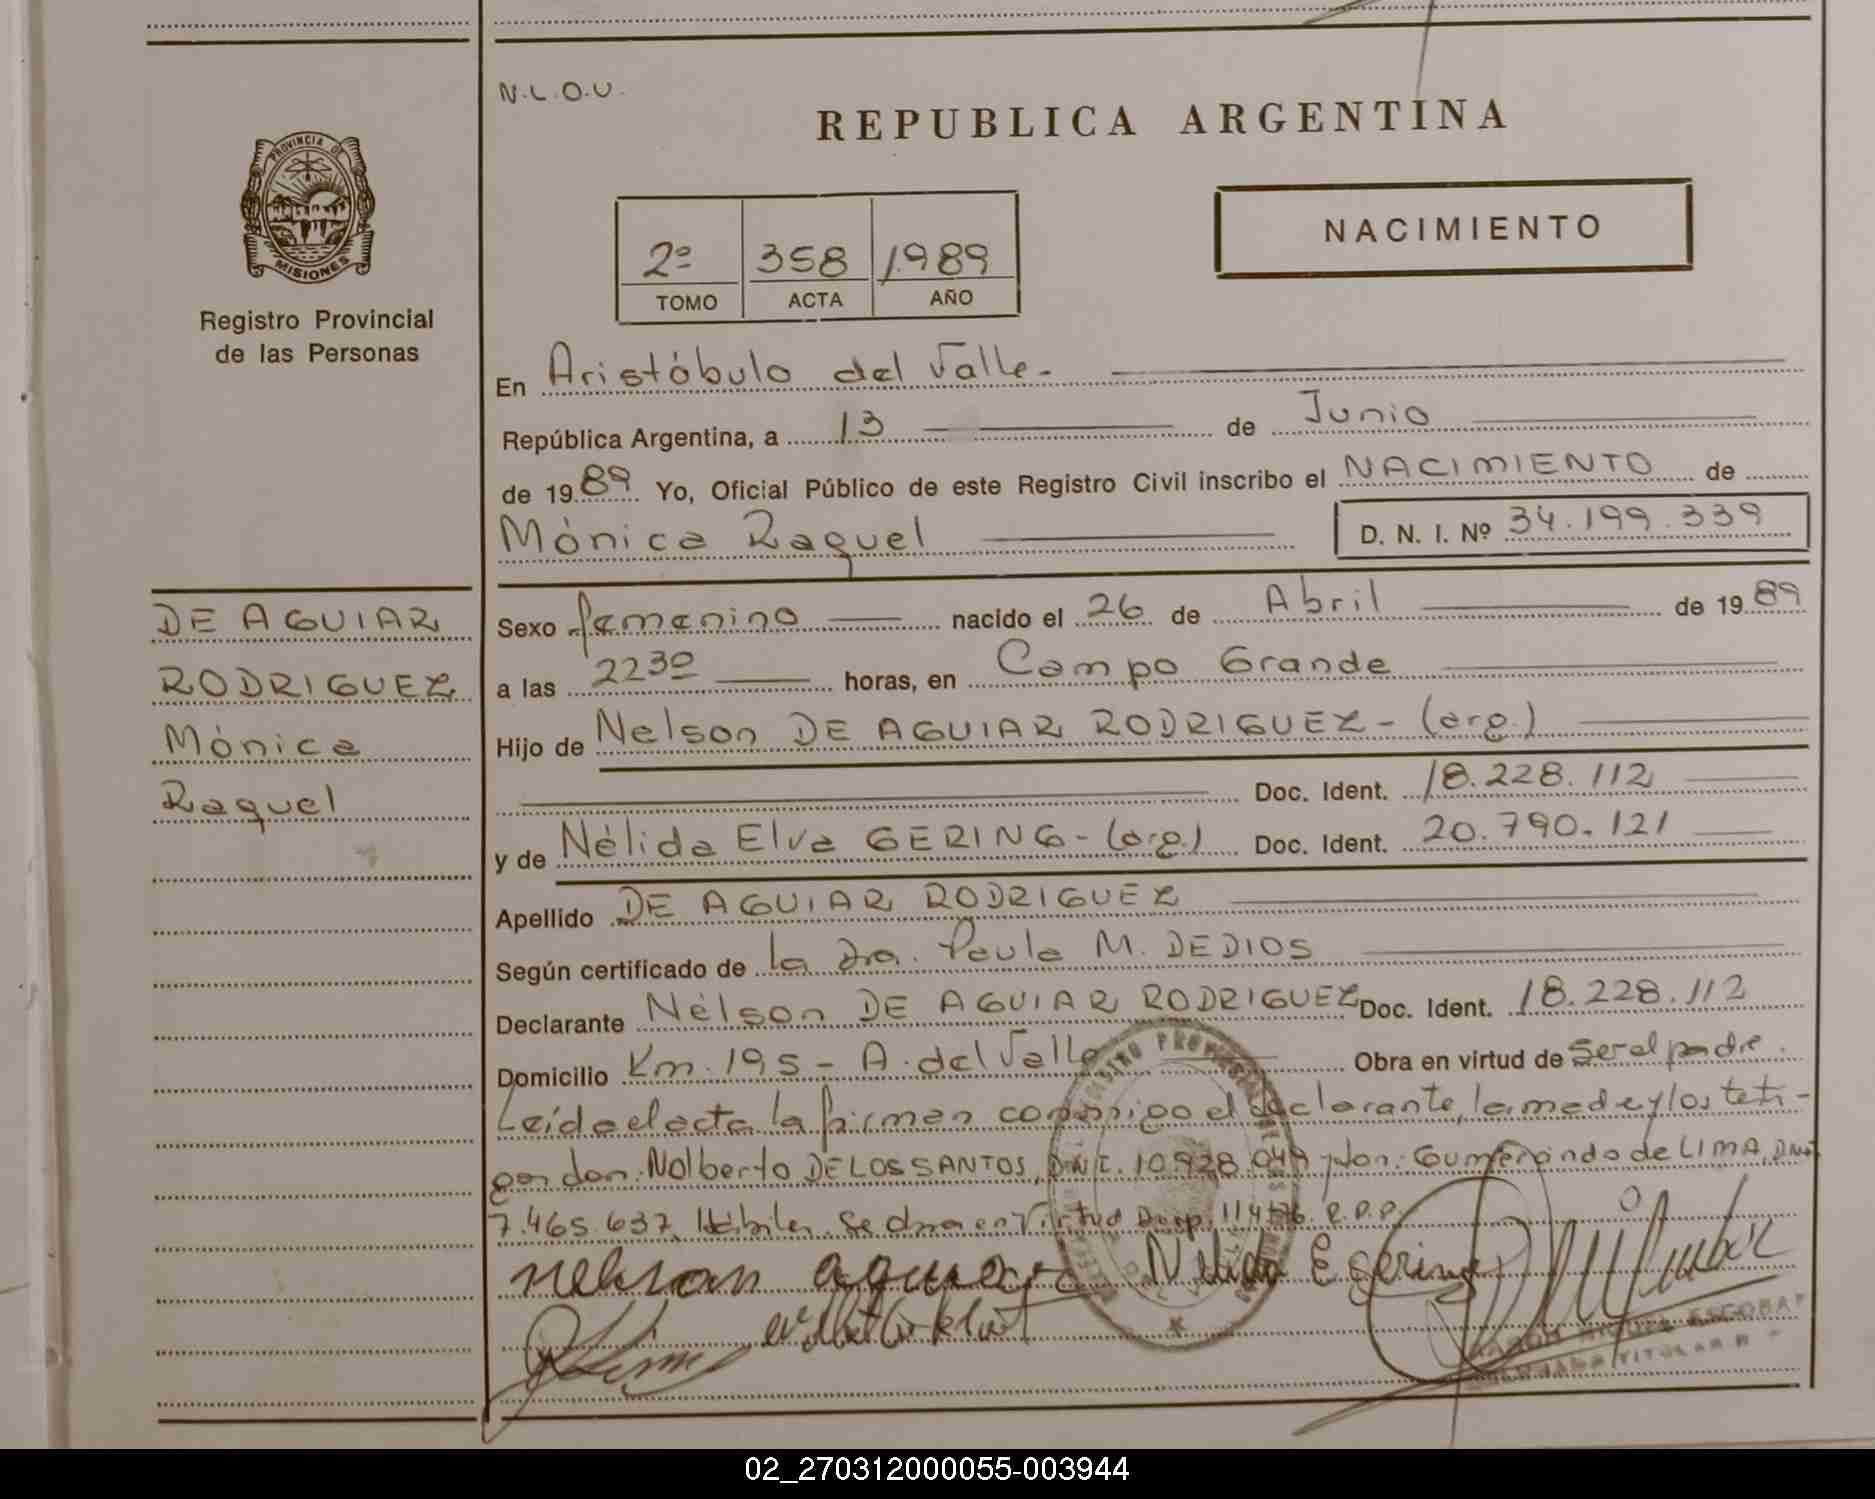 N.L.O.U.
REPUBLICA ARGENTINA
PROVINCIA DE
MISIONES
Registro Provincial
de las Personas
2º 358 1.989
TOMO ACTA AÑO
NACIMIENTO
En Aristóbulo del Valle.-
República Argentina, a 13 de Junio
de 1989 Yo, Oficial Público de este Registro Civil inscribo el NACIMIENTO de
Mónica Raquel D. N. I. Nº 34.199.339
DE AGUIAR
RODRIGUEZ
Mónica
Raquel
Sexo femenino nacido el 26 de Abril de 1989
a las 2230 horas, en Campo Grande
Hijo de Nelson DE AGUIAR RODRIGUEZ - (arg.)
Doc. Ident. 18.228.112
y de Nélida Elva GERING - (arg.) Doc. Ident. 20.790.121
Apellido DE AGUIAR RODRIGUEZ
Según certificado de la Dra. Paula M. DEDIOS
Declarante Nélson DE AGUIAR RODRIGUEZ Doc. Ident. 18.228.112
Domicilio Km. 195 - A. del Valle Obra en virtud de ser el padre.
Leída el acta la firman conmigo el declarante, la madre y los testi-
gos don: Nolberto DE LOS SANTOS, D.N.I. 10.928.049 y don: Gumercindo de LIMA, DNI
7.465.637 Hábiles. Se dma en Virtud Disp. 114/76. R.P.P.
nelson aguiar Nelida E gering
ESCOBAR
TITULAR
02_270312000055-003944